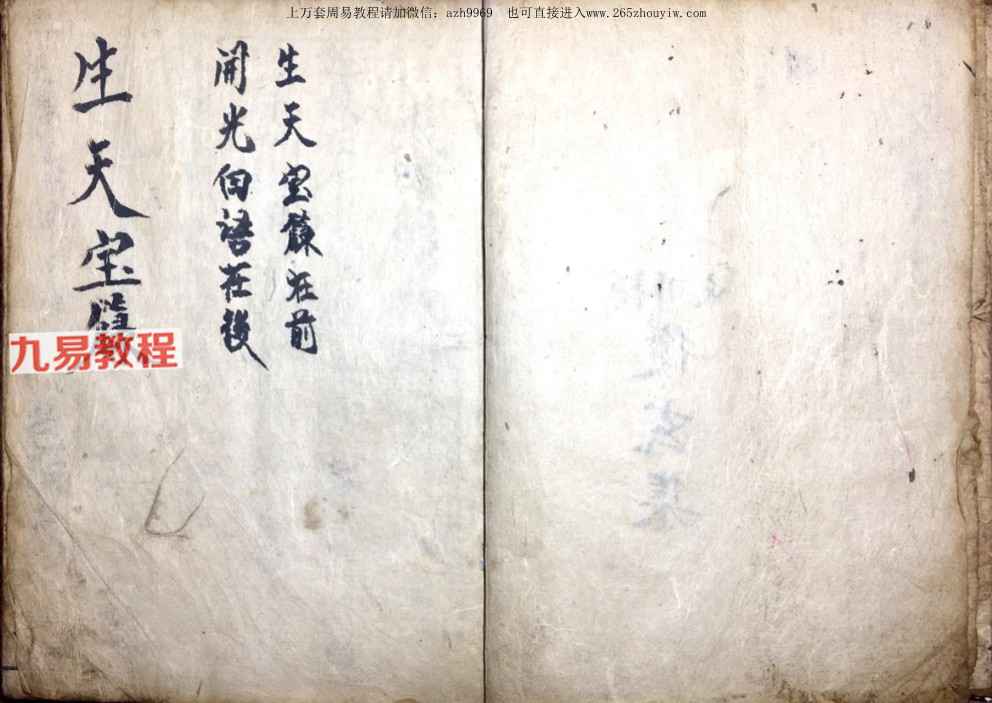 上万套周易教程请加微信：azh9969　也可直接进入www.265zhouyiw.com
生天宝籙在前
開光白語在後
生天宝
九易教程